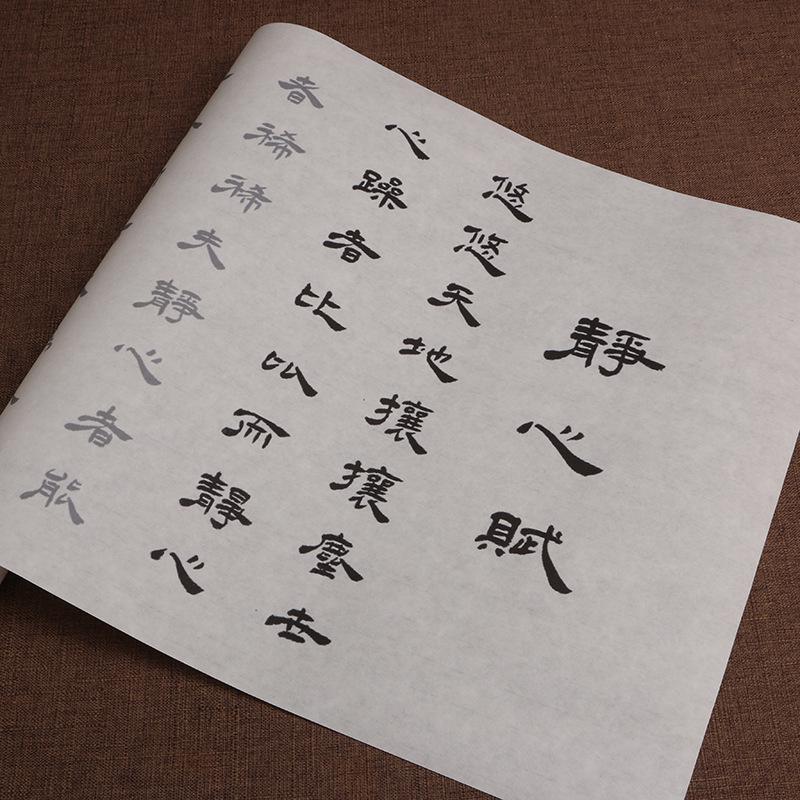 靜心賦
悠悠天地攘攘塵世
心躁者比以而靜心
者稀稀夫靜心者能